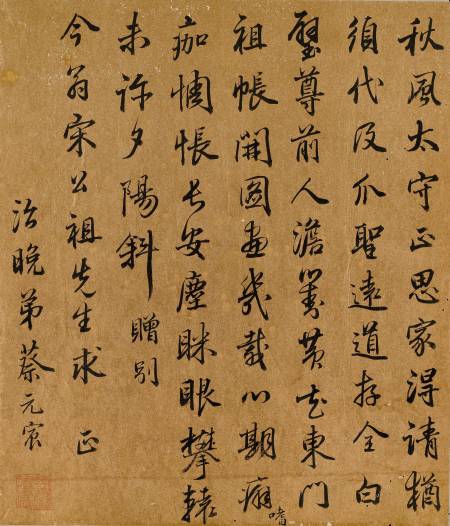 秋風太守正思家得請猶
須代及瓜聖遠道存全白
璧尊前人澹對黃花東門
祖帳開圖畫幾載心期癖嗜
痂惆悵長安塵眯眼攀轅
未許夕陽斜 贈別
今翁宋公祖先生求 正
治晚弟蔡元宸